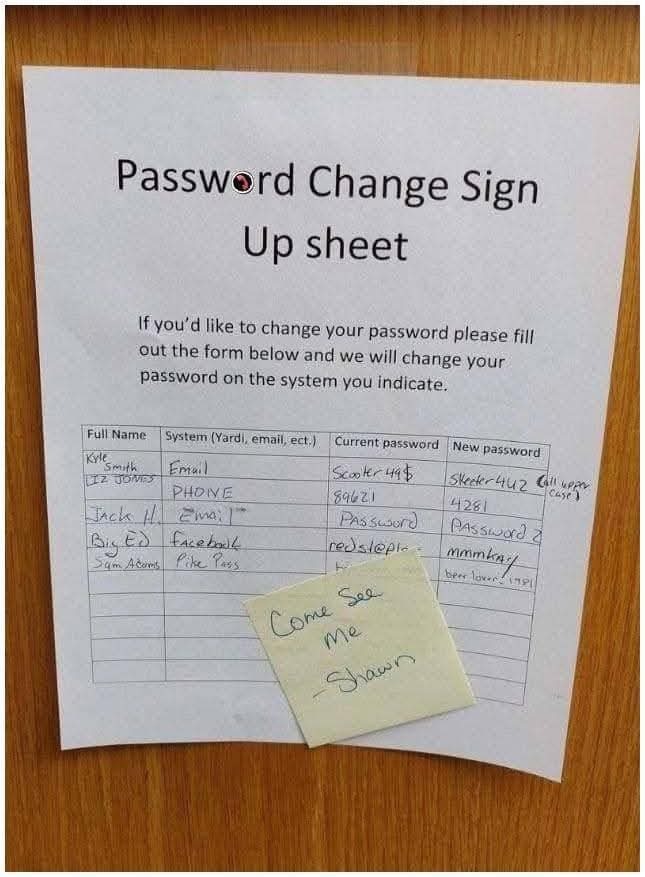 Password Change Sign
Up sheet
If you'd like to change your password please fill
out the form below and we will change your
password on the system you indicate.
Full Name System (Yardi, email, ect.) Current password New password
Kyle Smith Email Scooter 49$ Skeeter 4U2 (all upper case)
LIZ JONES PHONE 89621 4281
JACK H. Email PASSword PASSword 2
Big Ed facebook mmmkay
Sam Adams Pike Pass beer lover 1981
Come See
Me
- Shawn